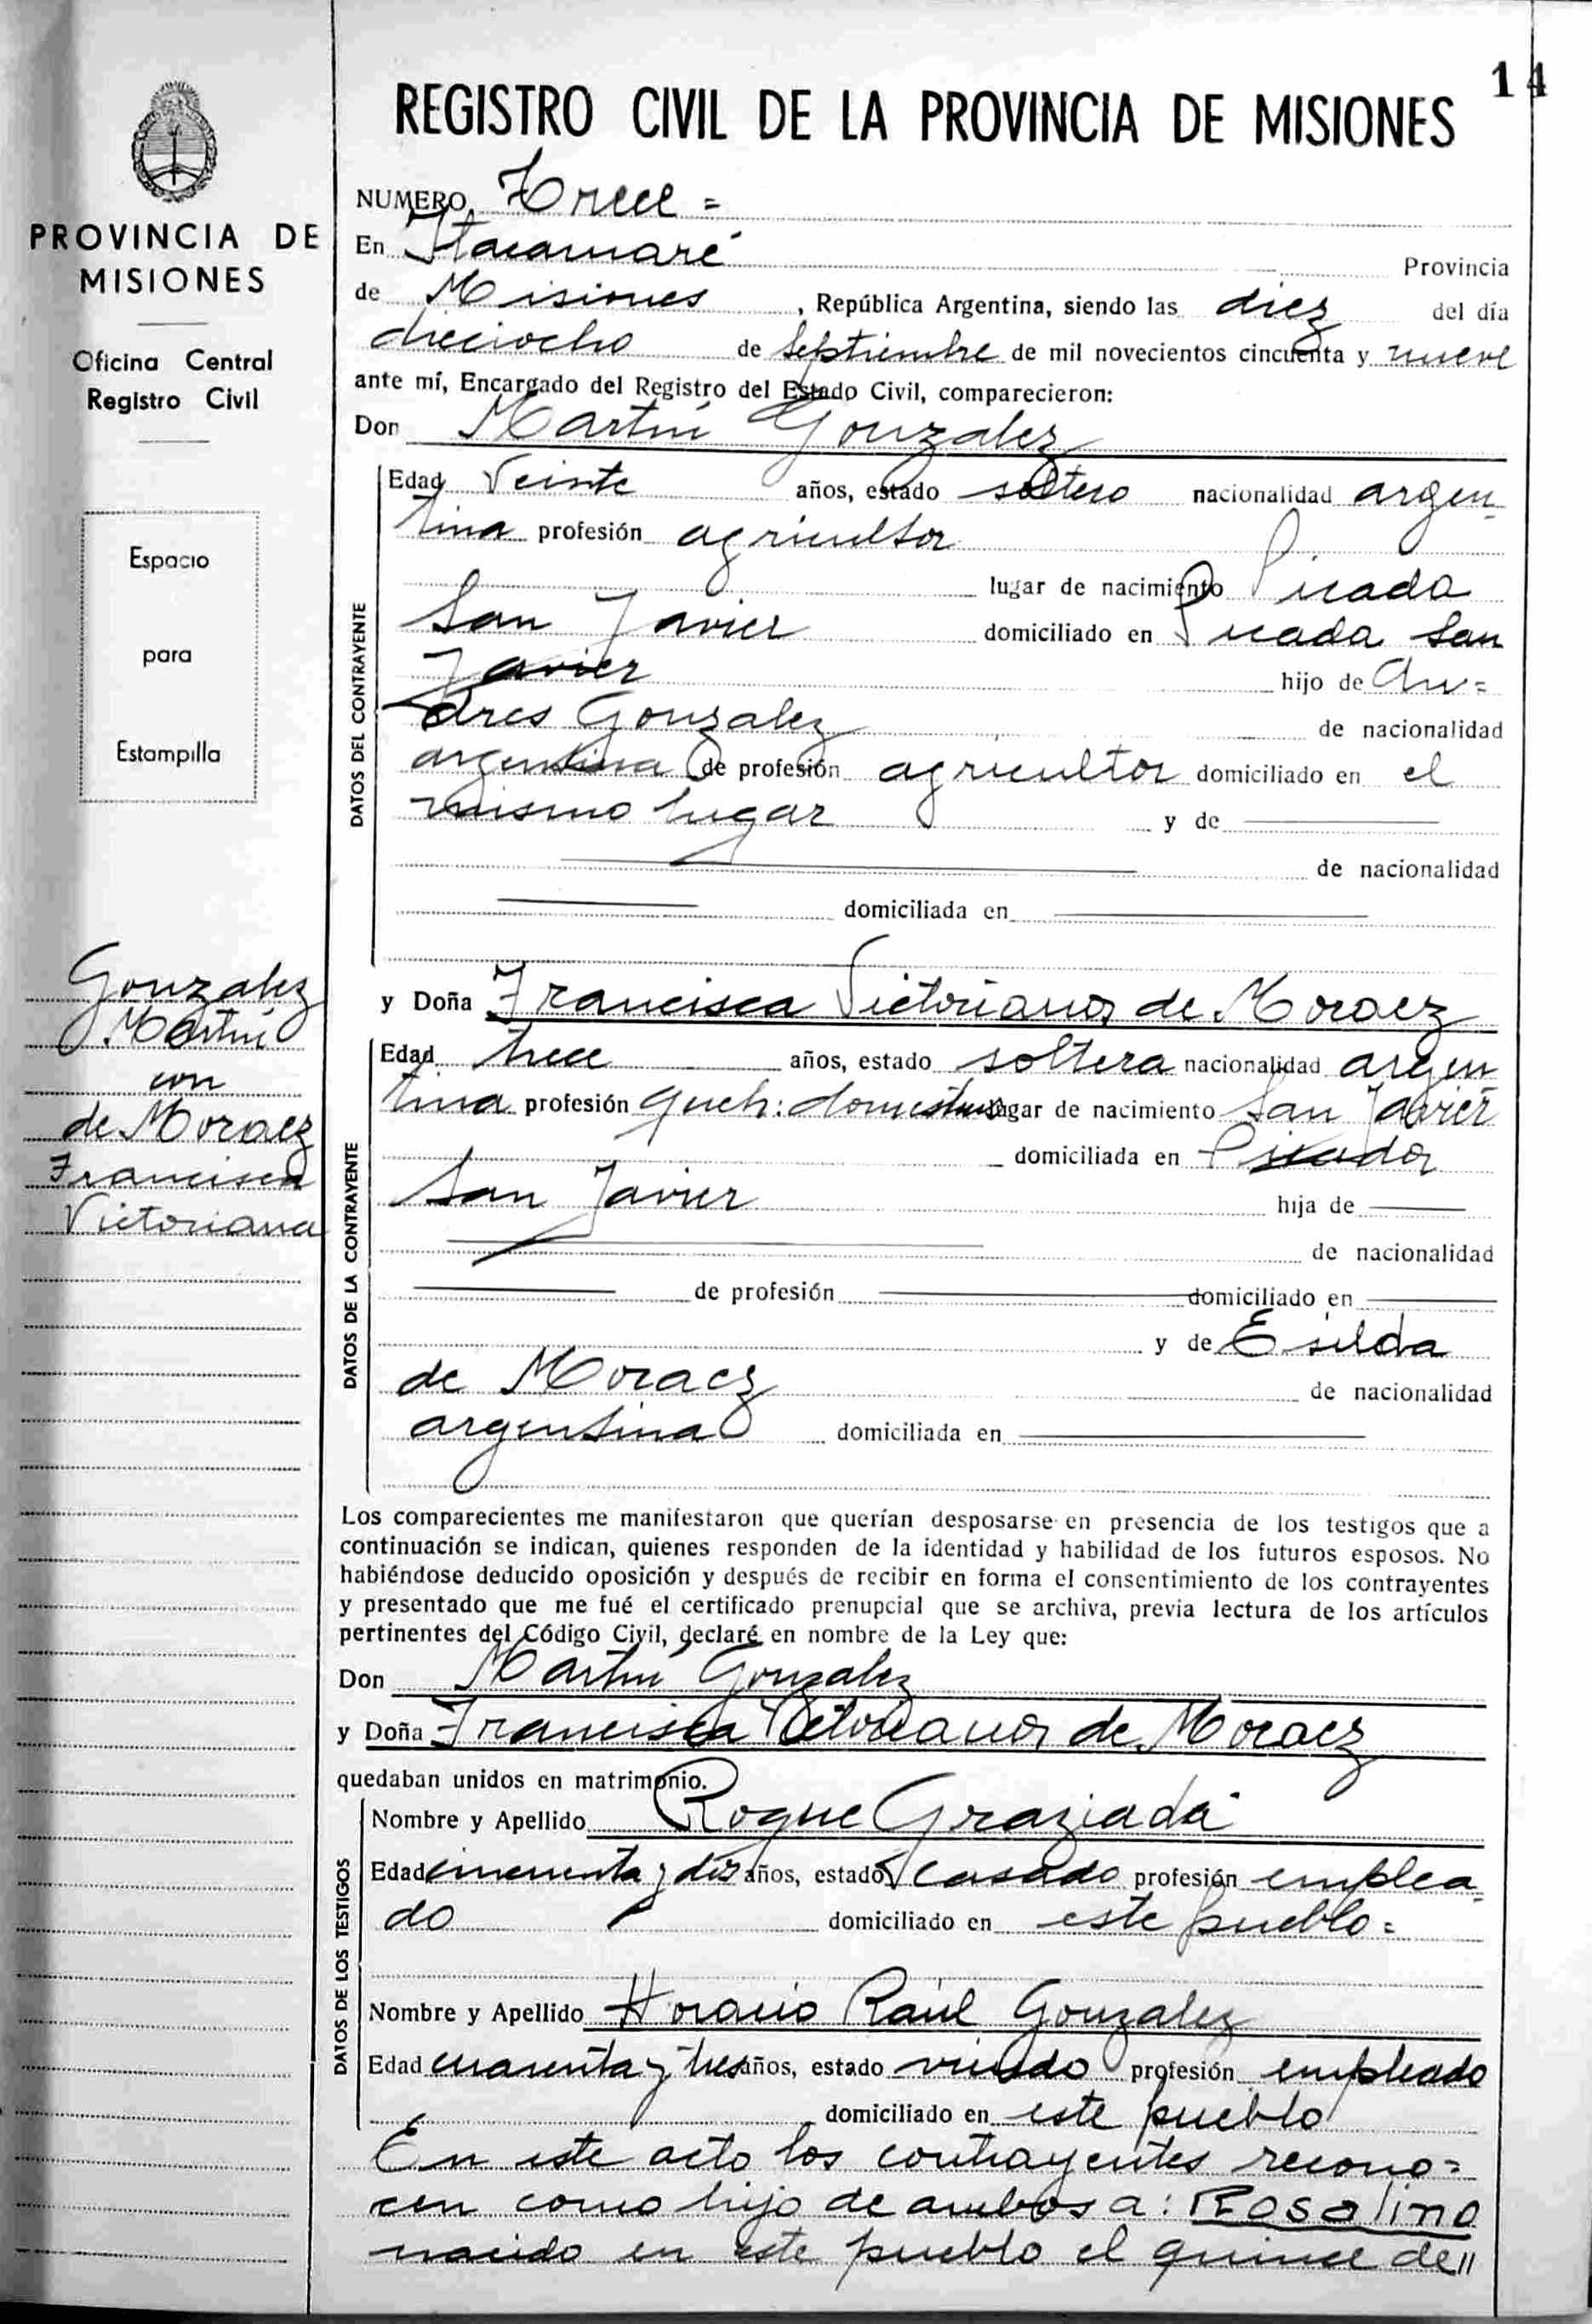 14
REGISTRO CIVIL DE LA PROVINCIA DE MISIONES
PROVINCIA DE
MISIONES
Oficina Central
Registro Civil
Espacio
para
Estampilla
Gonzalez
Martin
con
de Moraez
Francisca
Victoriana
NUMERO Trece =
En Itacamaré Provincia
de Misiones, República Argentina, siendo las diez del día
dieciocho de Septiembre de mil novecientos cincuenta y nueve
ante mí, Encargado del Registro del Estado Civil, comparecieron:
Don Martin Gonzalez
DATOS DEL CONTRAYENTE
Edad Veinte años, estado soltero nacionalidad argen
tina profesión agricultor
lugar de nacimiento Picada
San Javier domiciliado en Picada San
Javier hijo de An=
dres Gonzalez de nacionalidad
argentina de profesión agricultor domiciliado en el
mismo lugar y de
de nacionalidad
domiciliada en
y Doña Francisca Victoriana de Moraez
DATOS DE LA CONTRAYENTE
Edad trece años, estado soltera nacionalidad argen
tina profesión queh: domesticos lugar de nacimiento San Javier
domiciliada en Picada
San Javier hija de
de nacionalidad
de profesión domiciliado en
y de Esilda
de Moraez de nacionalidad
argentina domiciliada en
Los comparecientes me manifestaron que querían desposarse en presencia de los testigos que a
continuación se indican, quienes responden de la identidad y habilidad de los futuros esposos. No
habiéndose deducido oposición y después de recibir en forma el consentimiento de los contrayentes
y presentado que me fué el certificado prenupcial que se archiva, previa lectura de los artículos
pertinentes del Código Civil, declaré en nombre de la Ley que:
Don Martin Gonzalez
y Doña Francisca Victoriana de Moraez
quedaban unidos en matrimonio.
DATOS DE LOS TESTIGOS
Nombre y Apellido Roque Graziada
Edad cincuenta y dos años, estado casado profesión emplea
do domiciliado en este pueblo=
Nombre y Apellido Horacio Raúl Gonzalez
Edad cuarenta y tres años, estado viudo profesión empleado
domiciliado en este pueblo
En este acto los contrayentes recono=
cen como hijo de ambos a: Rosalino
nacido en este pueblo el quince de //